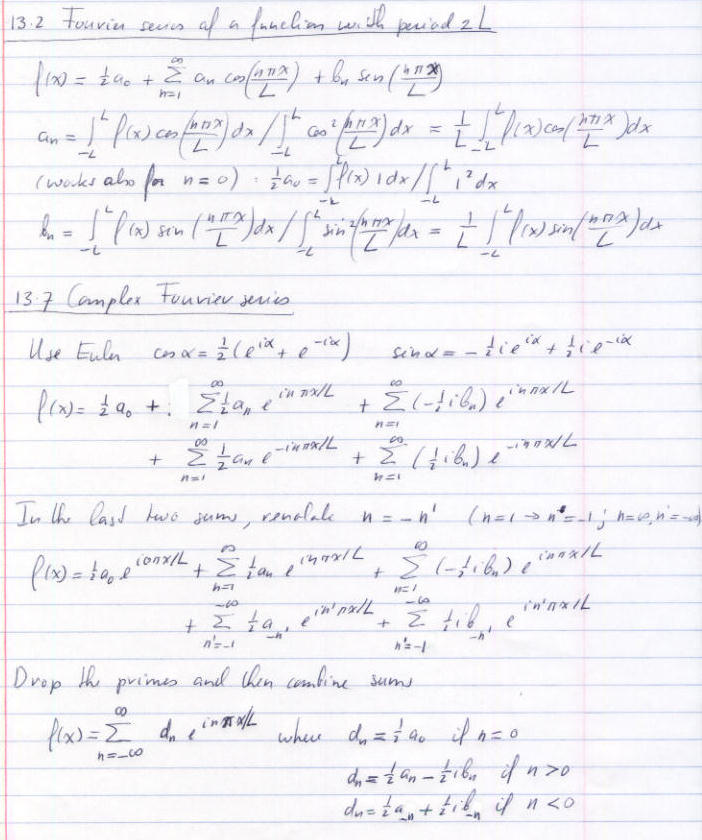 13.2 Fourier series of a function with period 2L
f(x) = ½a₀ + Σ_{n=1}^{∞} aₙ cos(nπx/L) + bₙ sin(nπx/L)
aₙ = ∫_{-L}^{L} f(x) cos(nπx/L) dx / ∫_{-L}^{L} cos²(nπx/L) dx = 1/L ∫_{-L}^{L} f(x) cos(nπx/L) dx
(works also for n = 0) : ½a₀ = ∫_{-L}^{L} f(x) 1 dx / ∫_{-L}^{L} 1² dx
bₙ = ∫_{-L}^{L} f(x) sin(nπx/L) dx / ∫_{-L}^{L} sin²(nπx/L) dx = 1/L ∫_{-L}^{L} f(x) sin(nπx/L) dx
13.7 Complex Fourier series
Use Euler cos α = ½(e^{iα} + e^{-iα}) sin α = -½ i e^{iα} + ½ i e^{-iα}
f(x) = ½a₀ + Σ_{n=1}^{∞} ½aₙ e^{inπx/L} + Σ_{n=1}^{∞} (-½ibₙ) e^{inπx/L}
+ Σ_{n=1}^{∞} ½aₙ e^{-inπx/L} + Σ_{n=1}^{∞} (½ibₙ) e^{-inπx/L}
In the last two sums, n = -n' (n=1 → n'=-1; n=∞, n'=-∞)
f(x) = ½a₀ e^{i0πx/L} + Σ_{n=1}^{∞} ½aₙ e^{inπx/L} + Σ_{n=1}^{∞} (-½ibₙ) e^{inπx/L}
+ Σ_{n'=-1}^{-∞} ½a_{-n'} e^{in'πx/L} + Σ_{n'=-1}^{-∞} ½ib_{-n'} e^{in'πx/L}
Drop the primes and then combine sums
f(x) = Σ_{n=-∞}^{∞} dₙ e^{inπx/L} where dₙ = ½a₀ if n = 0
dₙ = ½aₙ - ½ibₙ if n > 0
dₙ = ½a_{-n} + ½ib_{-n} if n < 0